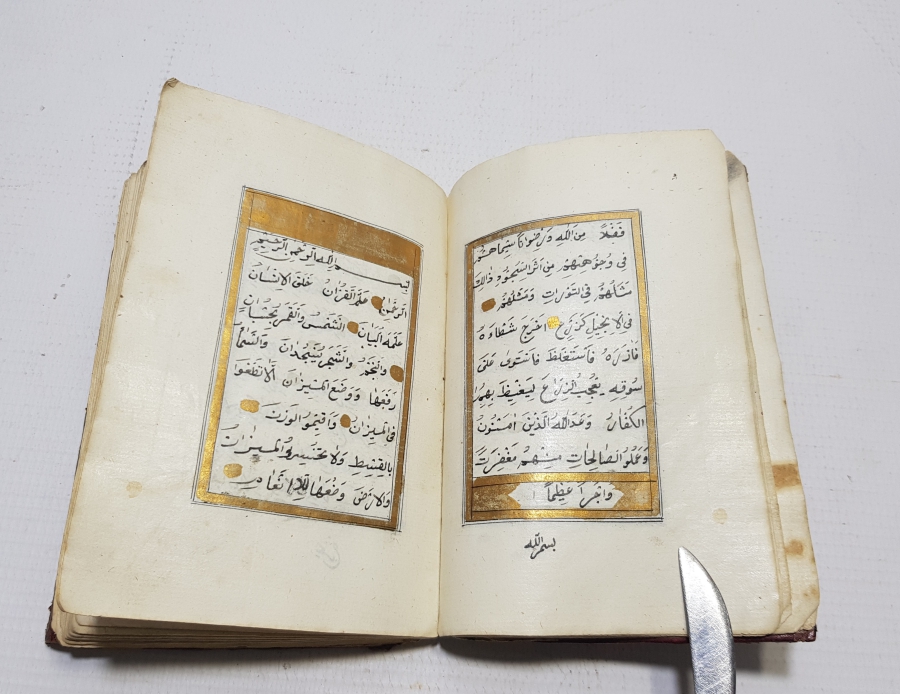 فضلا من الله ورضوانا سيماهم
فى وجوههم من اثر السجود ذالك
مثلهم فى التورات ومثلهم
فى الانجيل كزرع اخرج شطاءه
فازره فاستغلظ فاستوى على
سوقه يعجب الزراع ليغيظ بهم
الكفار وعد الله الذين امنو
وعملو الصالحات منهم مغفرت
واجرا عظيما
بسم الله
بسم الله الرحمن الرحيم
الرحمن علم القران خلق الانسان
علمه البيان الشمس والقمر بحسبان
والنجم والشجر يسجدان والسماء
رفعها ووضع الميزان الا تطغوا
فى الميزان واقيمو الوزن
بالقسط ولا تخسرو الميزان
والارض وضعها للانام